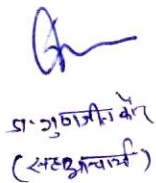 डा॰ गुणजीत कौर
(सहआचार्य)